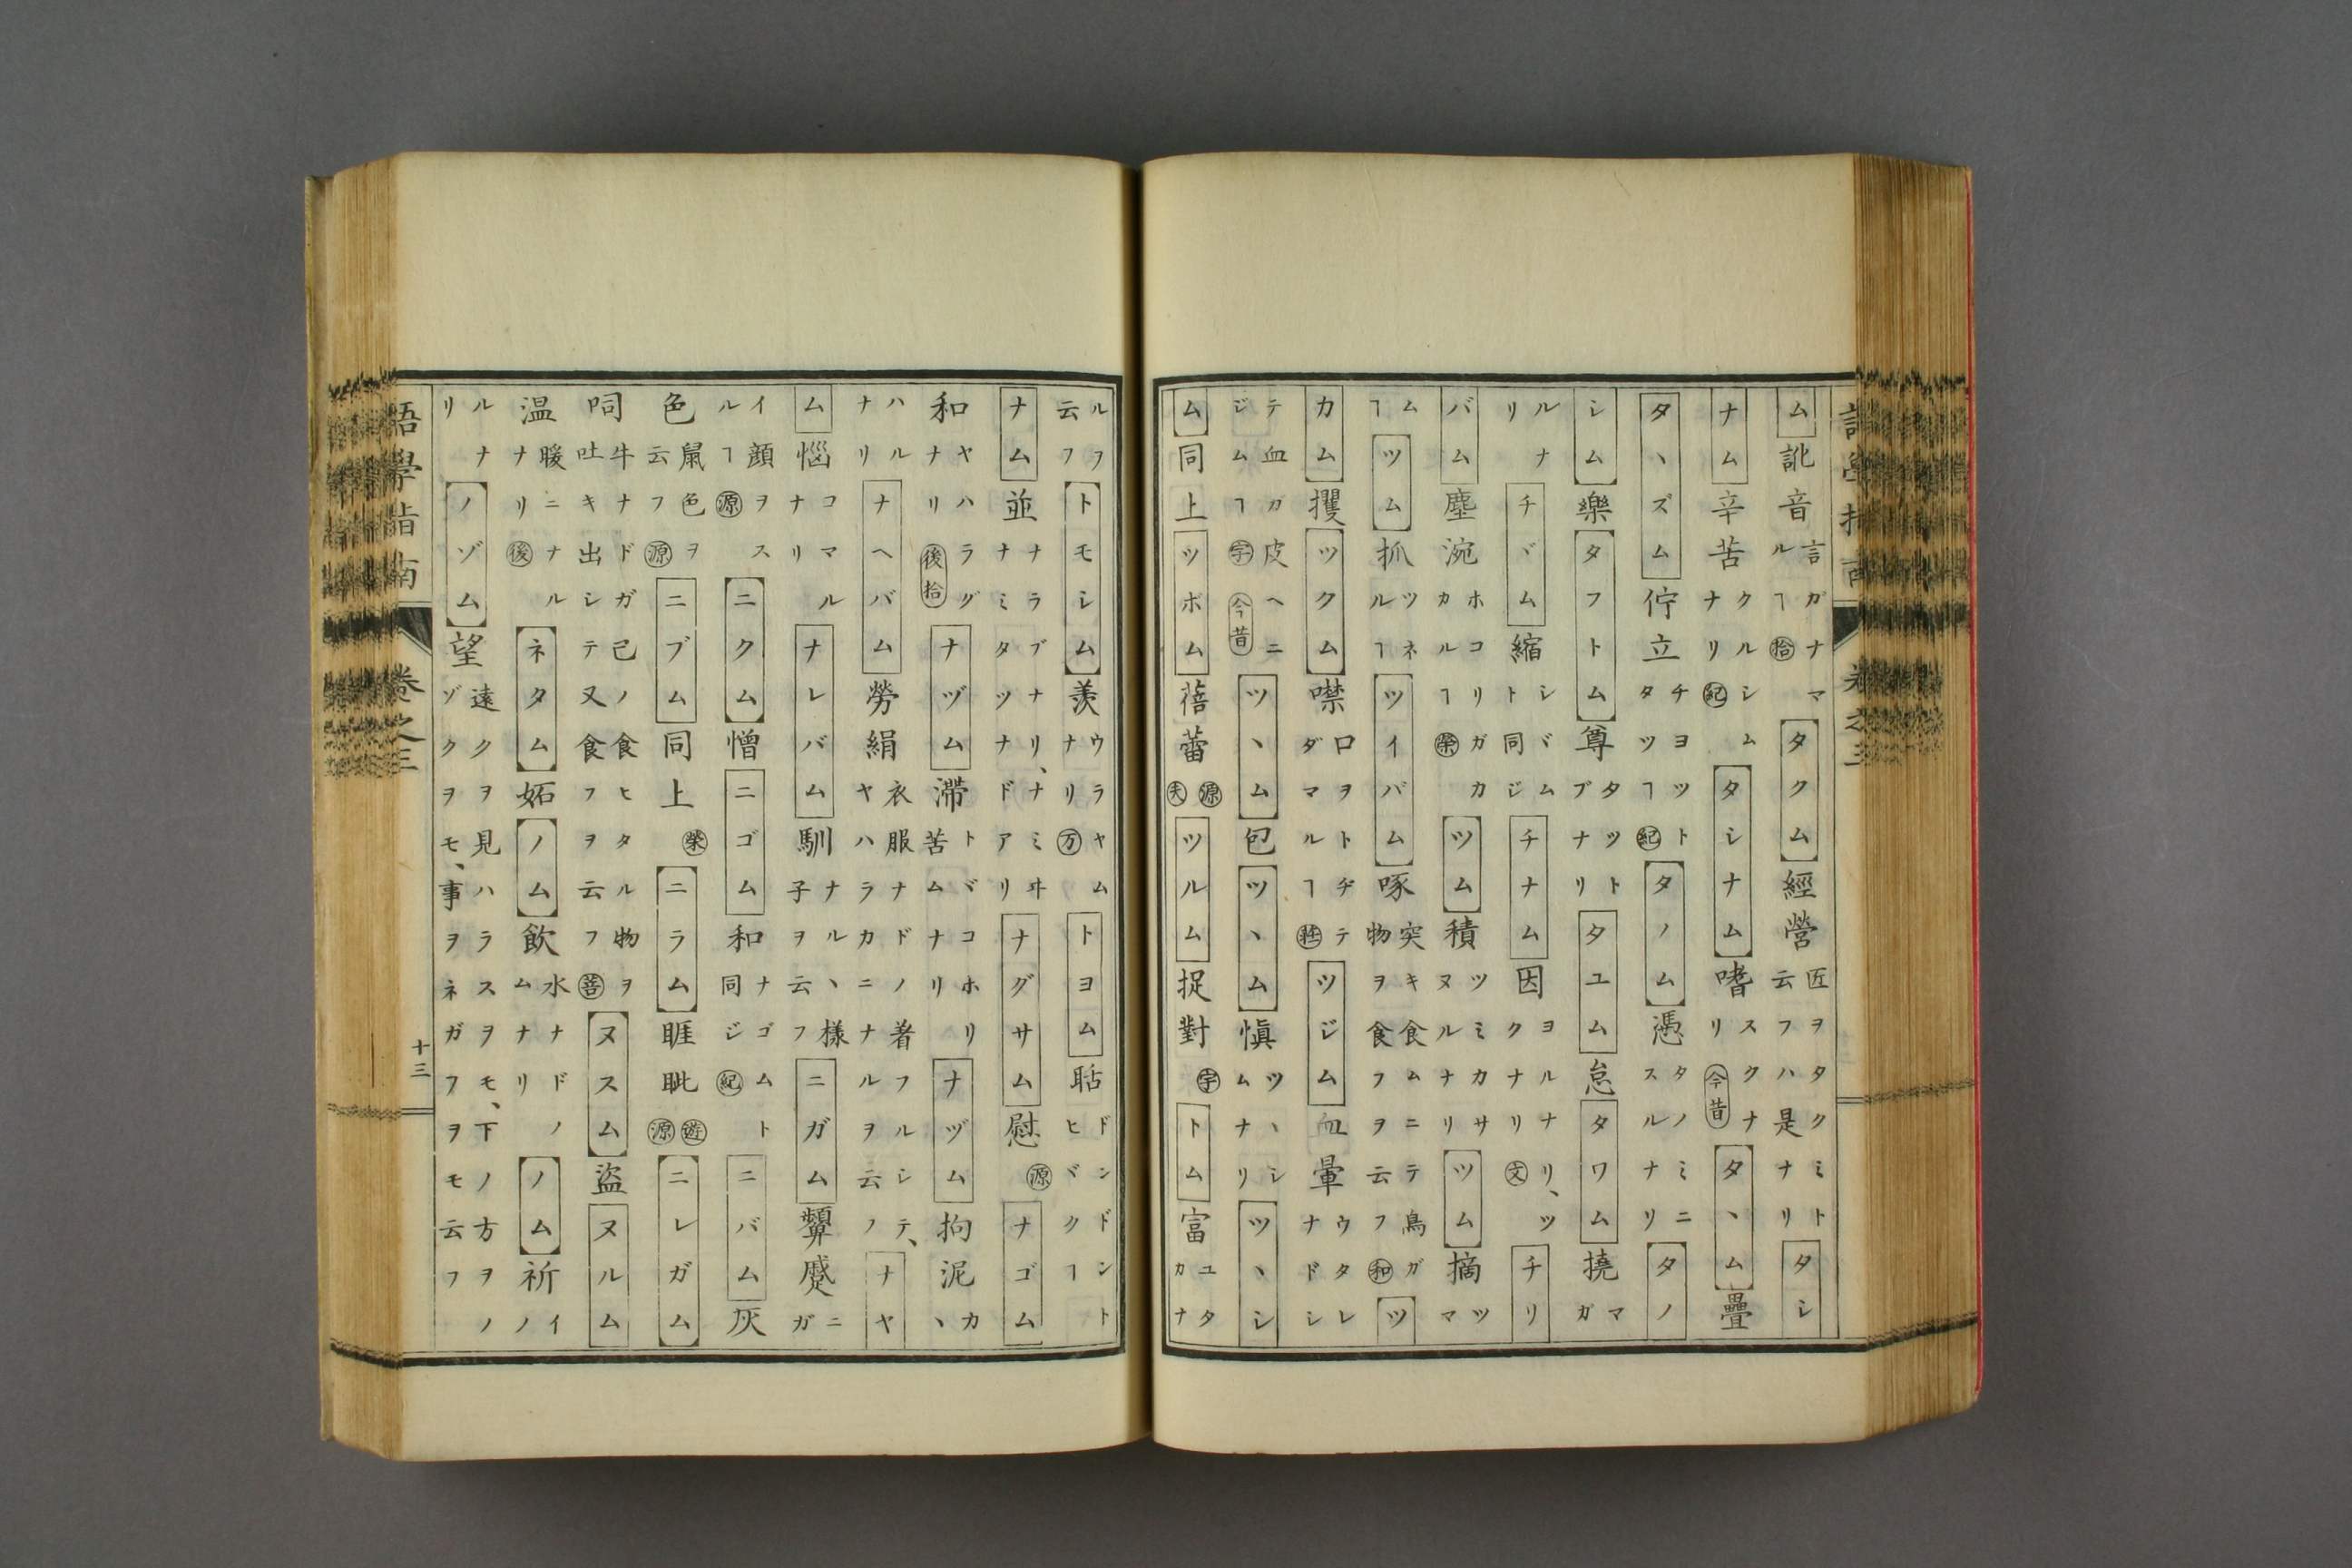 ム訛音言ガナマルヿ拾タクム經營匠ヲタクミト云フハ是ナリタシ
ナム辛苦クルシムナリ紀タシナム嗜スクナリ今昔タヽム疊
タヽズム佇立チヨツトタツヿ紀タノム憑タノミニスルナリタノ
シム樂タフトム尊タツトブナリタユム怠タワム撓マガ
ルナリチヾム縮シヾムト同ジチナム因ヨルナリ、ツクナリ文チリ
バム塵涴ホコリガカカルヿ榮ツム積ツミカサヌルナリツム摘ツマ
ムヿツム抓ツネルヿツイバム啄突キ食ムニテ鳥ガ物ヲ食フヲ云フ和ツ
カム攫ツクム噤口ヲトヂテダマルヿツジム血暈ウタレナドシ
テ血ガ皮ヘニジムヿ字今昔ツヽム包ツヽム愼ツヽシムナリツヽシ
ム同上ツボム蓓蕾源夫ツルム捉對字トム富ユタカナ
ルヲ云フトモシム羨ウラヤムナリ万トヨム聒ドンドントヒヾクヿ
ナム並ナラブナリ、ナミヰナミタツナドアリナグサム慰源ナゴム
和ヤハラグナリ後拾ナヅム滯トヾコホリ苦ムナリナヅム拘泥カヽ
ハルナリナヘバム勞絹衣服ナドノ着フルシテ、ヤハラカニナルヲ云ノナヤ
ム惱コマルナリナレバム馴ナルヽ樣子ヲ云フニガム顰蹙ニガ
イ顔ヲスルヿ源ニクム憎ニゴム和ナゴムト同ジ紀ニバム灰
色鼠色ヲ云フ源ニブム同上榮ニラム睚眦遊源ニレガム
呞牛ナドガ己ノ食ヒタル物ヲ吐キ出シテ又食フヲ云フ菩ヌスム盜ヌルム
温暖ニナルナリ後ネタム妬ノム飮水ナドノムナリノム祈イノ
ルナリノゾム望遠クヲ見ハラスヲモ、下ノ方ヲノゾクヲモ、事ヲネガフヲモ云フ
語學指南 卷之三 十三